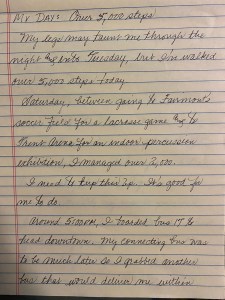 My Day: Over 5,000 steps
My legs may taunt me through the
night & into Tuesday, but I've walked
over 5,000 steps today.
Saturday, between going to Fairmont's
soccer field for a lacrosse game & to
Trent Arena for an indoor percussion
exhibition, I managed over 2,000.
I need to keep this up. It's good for
me to do.
Around 5:00PM, I boarded bus 17 to
head downtown. My connecting bus was
to be much later so I grabbed another
bus that would deliver me within